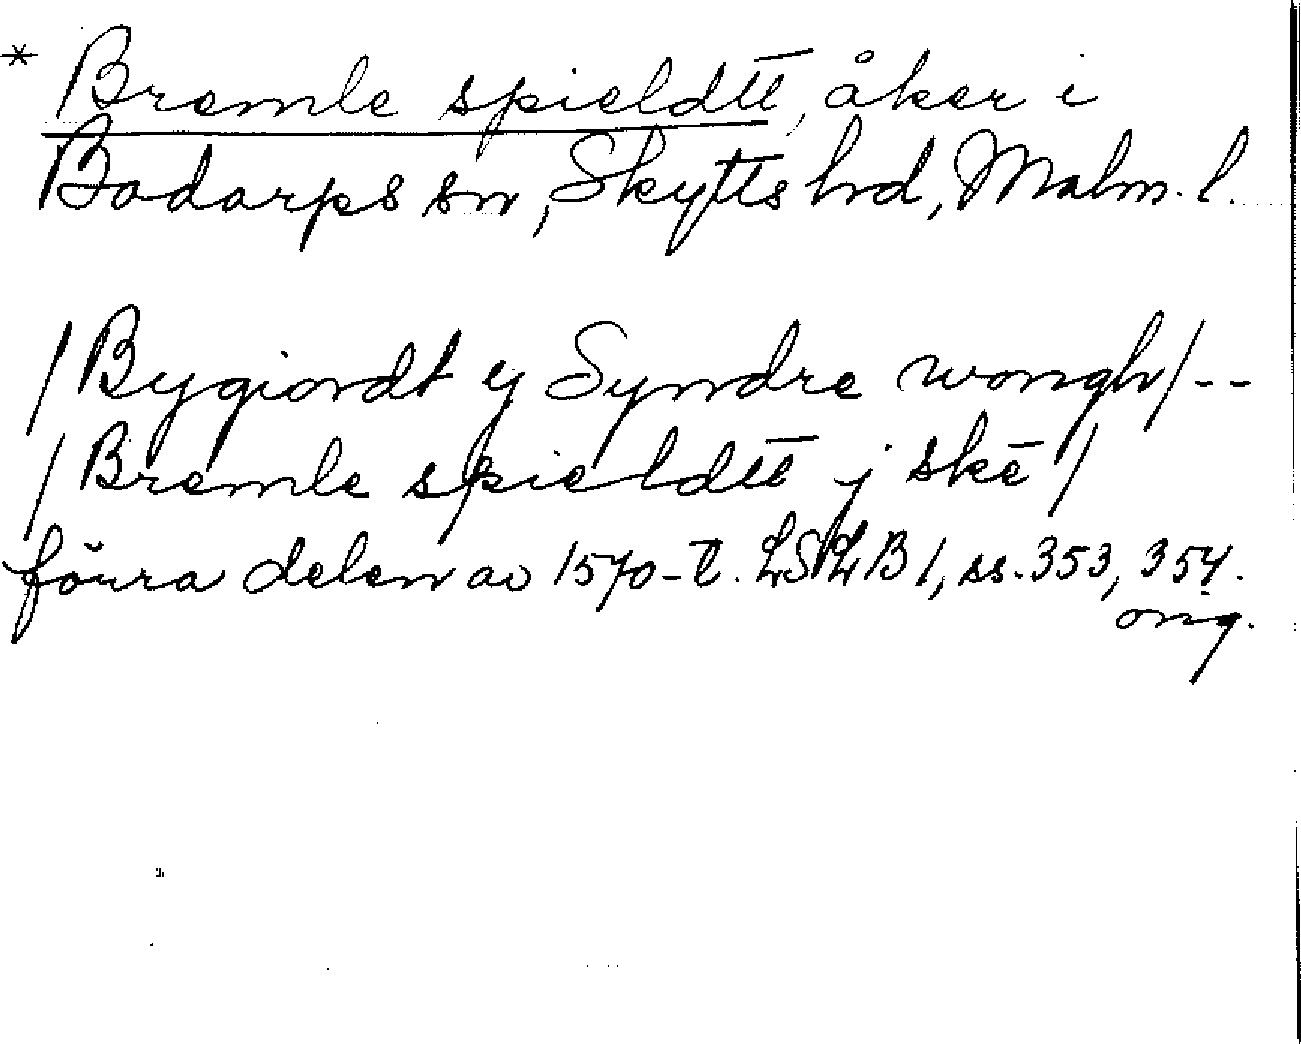 * Bremle spieldtt, åker i
Bodarps sn, Skytts hd, Malm. l.
/Bygiordt ij Syndre wongh/--
/Bremle spieldtt j skē/
förra delen av 1570-t. LSLB 1, ss. 353, 354.
org.